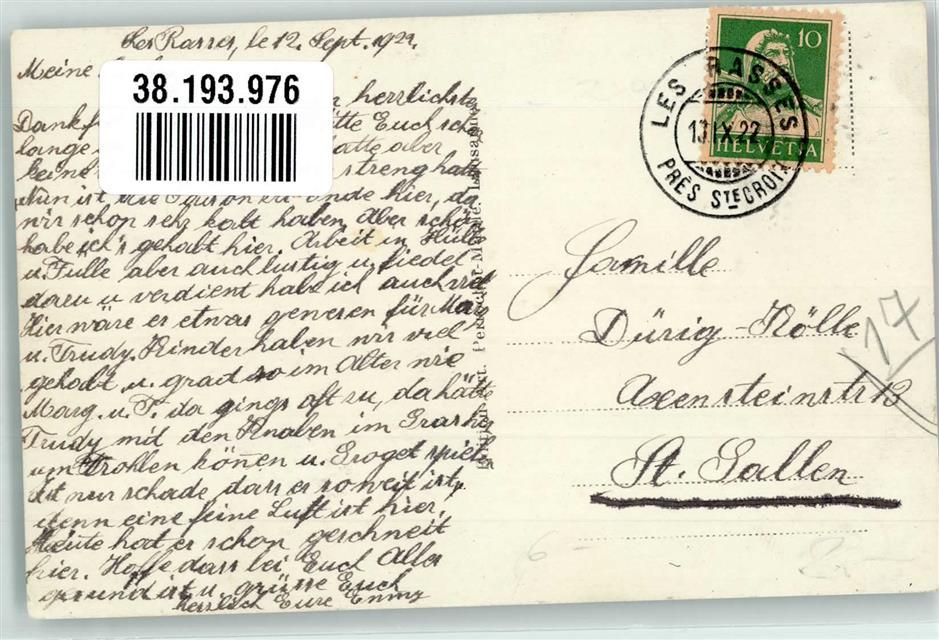 Les Rasses, le 12. Sept. 1922.
Meine
38.193.976
herrlichsten
Dank f hätte Euch schon
lange hatte aber
keine streng hat
Nun ist die Saison zu Ende hier, da
wir schon sehr kalt haben. Aber schön
habe ich's gehabt hier. Arbeit in Hülle
u. Fülle aber auch lustig u. fiedel
dazu u. verdient habe ich auch viel
Hier wäre er etwas gewesen für Marg
u. Trudy. Kinder haben wir viel
gehabt u. grad so im Alter wie
Marg. u. T. da gings oft zu, da hätte
Trudy mit den Knaben im Gras her
um strohlen können u. Croget spielen
Ist nur schade dass es so weit ist,
denn eine feine Luft ist hier.
Heute hat er schon geschneit
hier. Hoffe dass bei Euch Alles
gesund ist u. grüsse Euch
herzlich Eure Emmy
Perrochet-Matile, Lausanne
10
HELVETIA
LES RASSES
13.IX.22
PRÈS STE CROIX
Familie
Dürig-Nölle
Axensteinstr 13
St. Gallen
17
6-